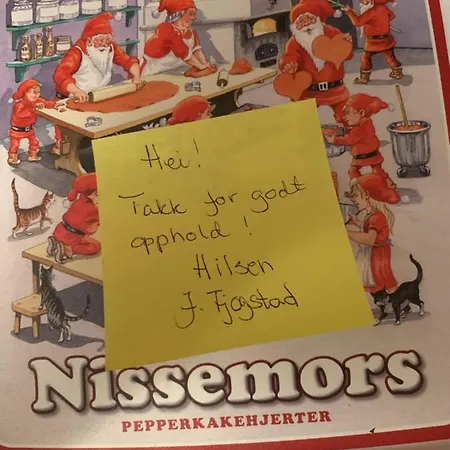 Hei!
Takk for godt
opphold!
Hilsen
J. Fjogstad
Nissemors
PEPPERKAKEHJERTER